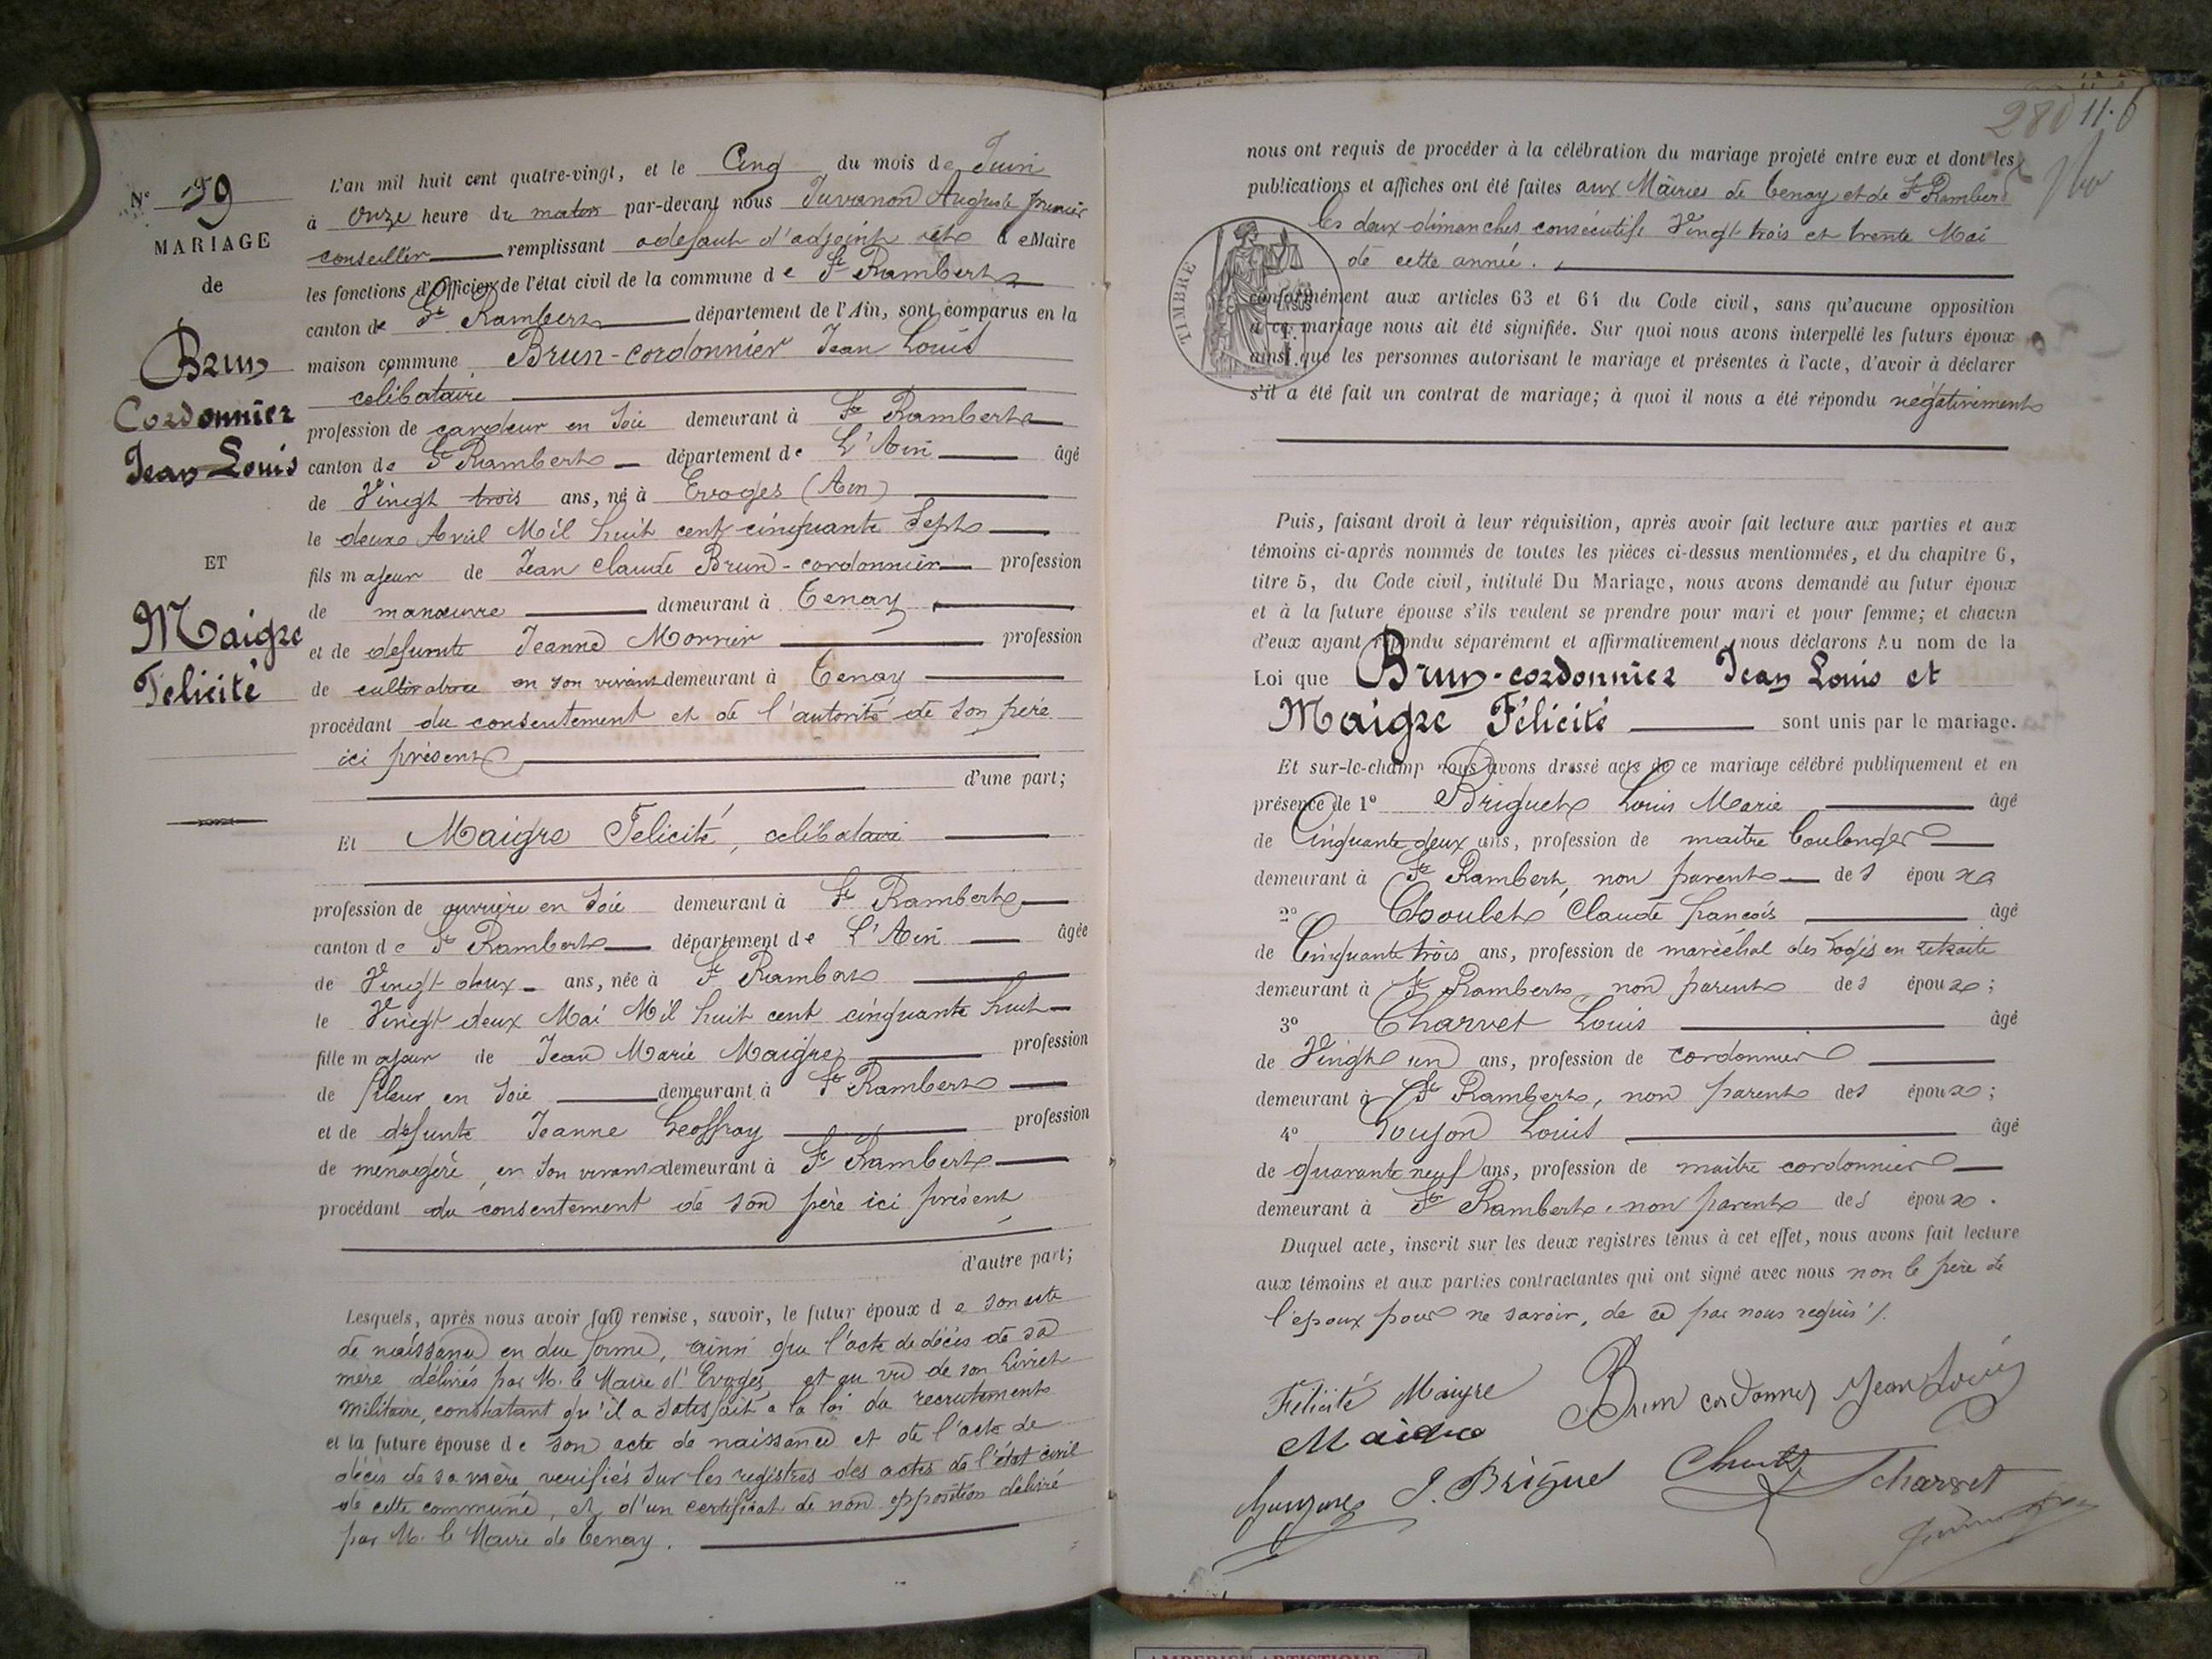 N° 19
MARIAGE
de
Brun
Cordonnier
Jean Louis
ET
Maigre
Félicité
L'an mil huit cent quatre-vingt, et le Cinq du mois de Juin
à onze heure du matin par-devant nous Juvanon Auguste premier
conseiller remplissant a défaut d'adjoint et de Maire
les fonctions d'Officier de l'état civil de la commune de St Rambert
canton de St Rambert département de l'Ain, sont comparus en la
maison commune Brun-cordonnier Jean Louis
celibataire
profession de cardeur en soie demeurant à St Rambert
canton de St Rambert département de L'Ain âgé
de Vingt trois ans, né à Evoges (Ain)
le deux Avril Mil huit cent cinquante Sept
fils majeur de Jean Claude Brun-cordonnier profession
de manœuvre demeurant à Tenay
et de defunte Jeanne Monnier profession
de cultivatrice en son vivant demeurant à Tenay
procédant du consentement et de l'autorité de son père
ici présent
d'une part;
Et Maigre Felicité, celibataire
profession de ouvrière en soie demeurant à St Rambert
canton de St Rambert département de L'Ain âgée
de Vingt deux ans, née à St Rambert
le Vingt deux Mai Mil huit cent cinquante huit
fille majeur de Jean Marie Maigre profession
de fileur en soie demeurant à St Rambert
et de défunte Jeanne Geoffray profession
de menagère, en son vivant demeurant à St Rambert
procédant du consentement de son père ici présent
d'autre part;
Lesquels, après nous avoir fait remise, savoir, le futur époux de son acte
de naissance en due forme, ainsi que l'acte de décès de sa
mère délivrés par M. le Maire d'Evoges et au vu de son Livret
Militaire, constatant qu'il a satisfait a la loi du recrutement
et la future épouse de son acte de naissance et de l'acte de
décès de sa mère, verifiés sur les registres des actes de l'état civil
de cette commune, et d'un certificat de non opposition délivré
par M. le Maire de Tenay.
280 11.6
nous ont requis de procéder à la célébration du mariage projeté entre eux et dont les
publications et affiches ont été faites aux Mairies de Tenay et de St Rambert
les deux dimanches consécutifs Vingt trois et trente Mai
de cette année.
TIMBRE
conformément aux articles 63 et 64 du Code civil, sans qu'aucune opposition
à ce mariage nous ait été signifiée. Sur quoi nous avons interpellé les futurs époux
ainsi que les personnes autorisant le mariage et présentes à l'acte, d'avoir à déclarer
s'il a été fait un contrat de mariage; à quoi il nous a été répondu négativement
Puis, faisant droit à leur réquisition, après avoir fait lecture aux parties et aux
témoins ci-après nommés de toutes les pièces ci-dessus mentionnées, et du chapitre 6,
titre 5, du Code civil, intitulé Du Mariage, nous avons demandé au futur époux
et à la future épouse s'ils veulent se prendre pour mari et pour femme; et chacun
d'eux ayant répondu séparément et affirmativement, nous déclarons Au nom de la
Loi que Brun-cordonnier Jean Louis et
Maigre Félicité sont unis par le mariage.
Et sur-le-champ nous avons dressé acte de ce mariage célébré publiquement et en
présence de 1° Briguet Louis Marie âgé
de Cinquante deux ans, profession de maitre boulanger
demeurant à St Rambert, non parent des époux
2° Claude françois âgé
de Cinquante trois ans, profession de maréchal des logis en retraite
demeurant à St Rambert, non parent des époux;
3° Charvet Louis âgé
de Vingt un ans, profession de cordonnier
demeurant à St Rambert, non parent des époux;
4° Goujon Louis âgé
de quarante neuf ans, profession de maitre cordonnier
demeurant à St Rambert, non parent des époux.
Duquel acte, inscrit sur les deux registres tenus à cet effet, nous avons fait lecture
aux témoins et aux parties contractantes qui ont signé avec nous non le père de
l'époux pour ne savoir, de ce par nous requis ./.
Félicité Maigre Brun cordonnier Jean Louis
Maigre
J. Brigue Charvet